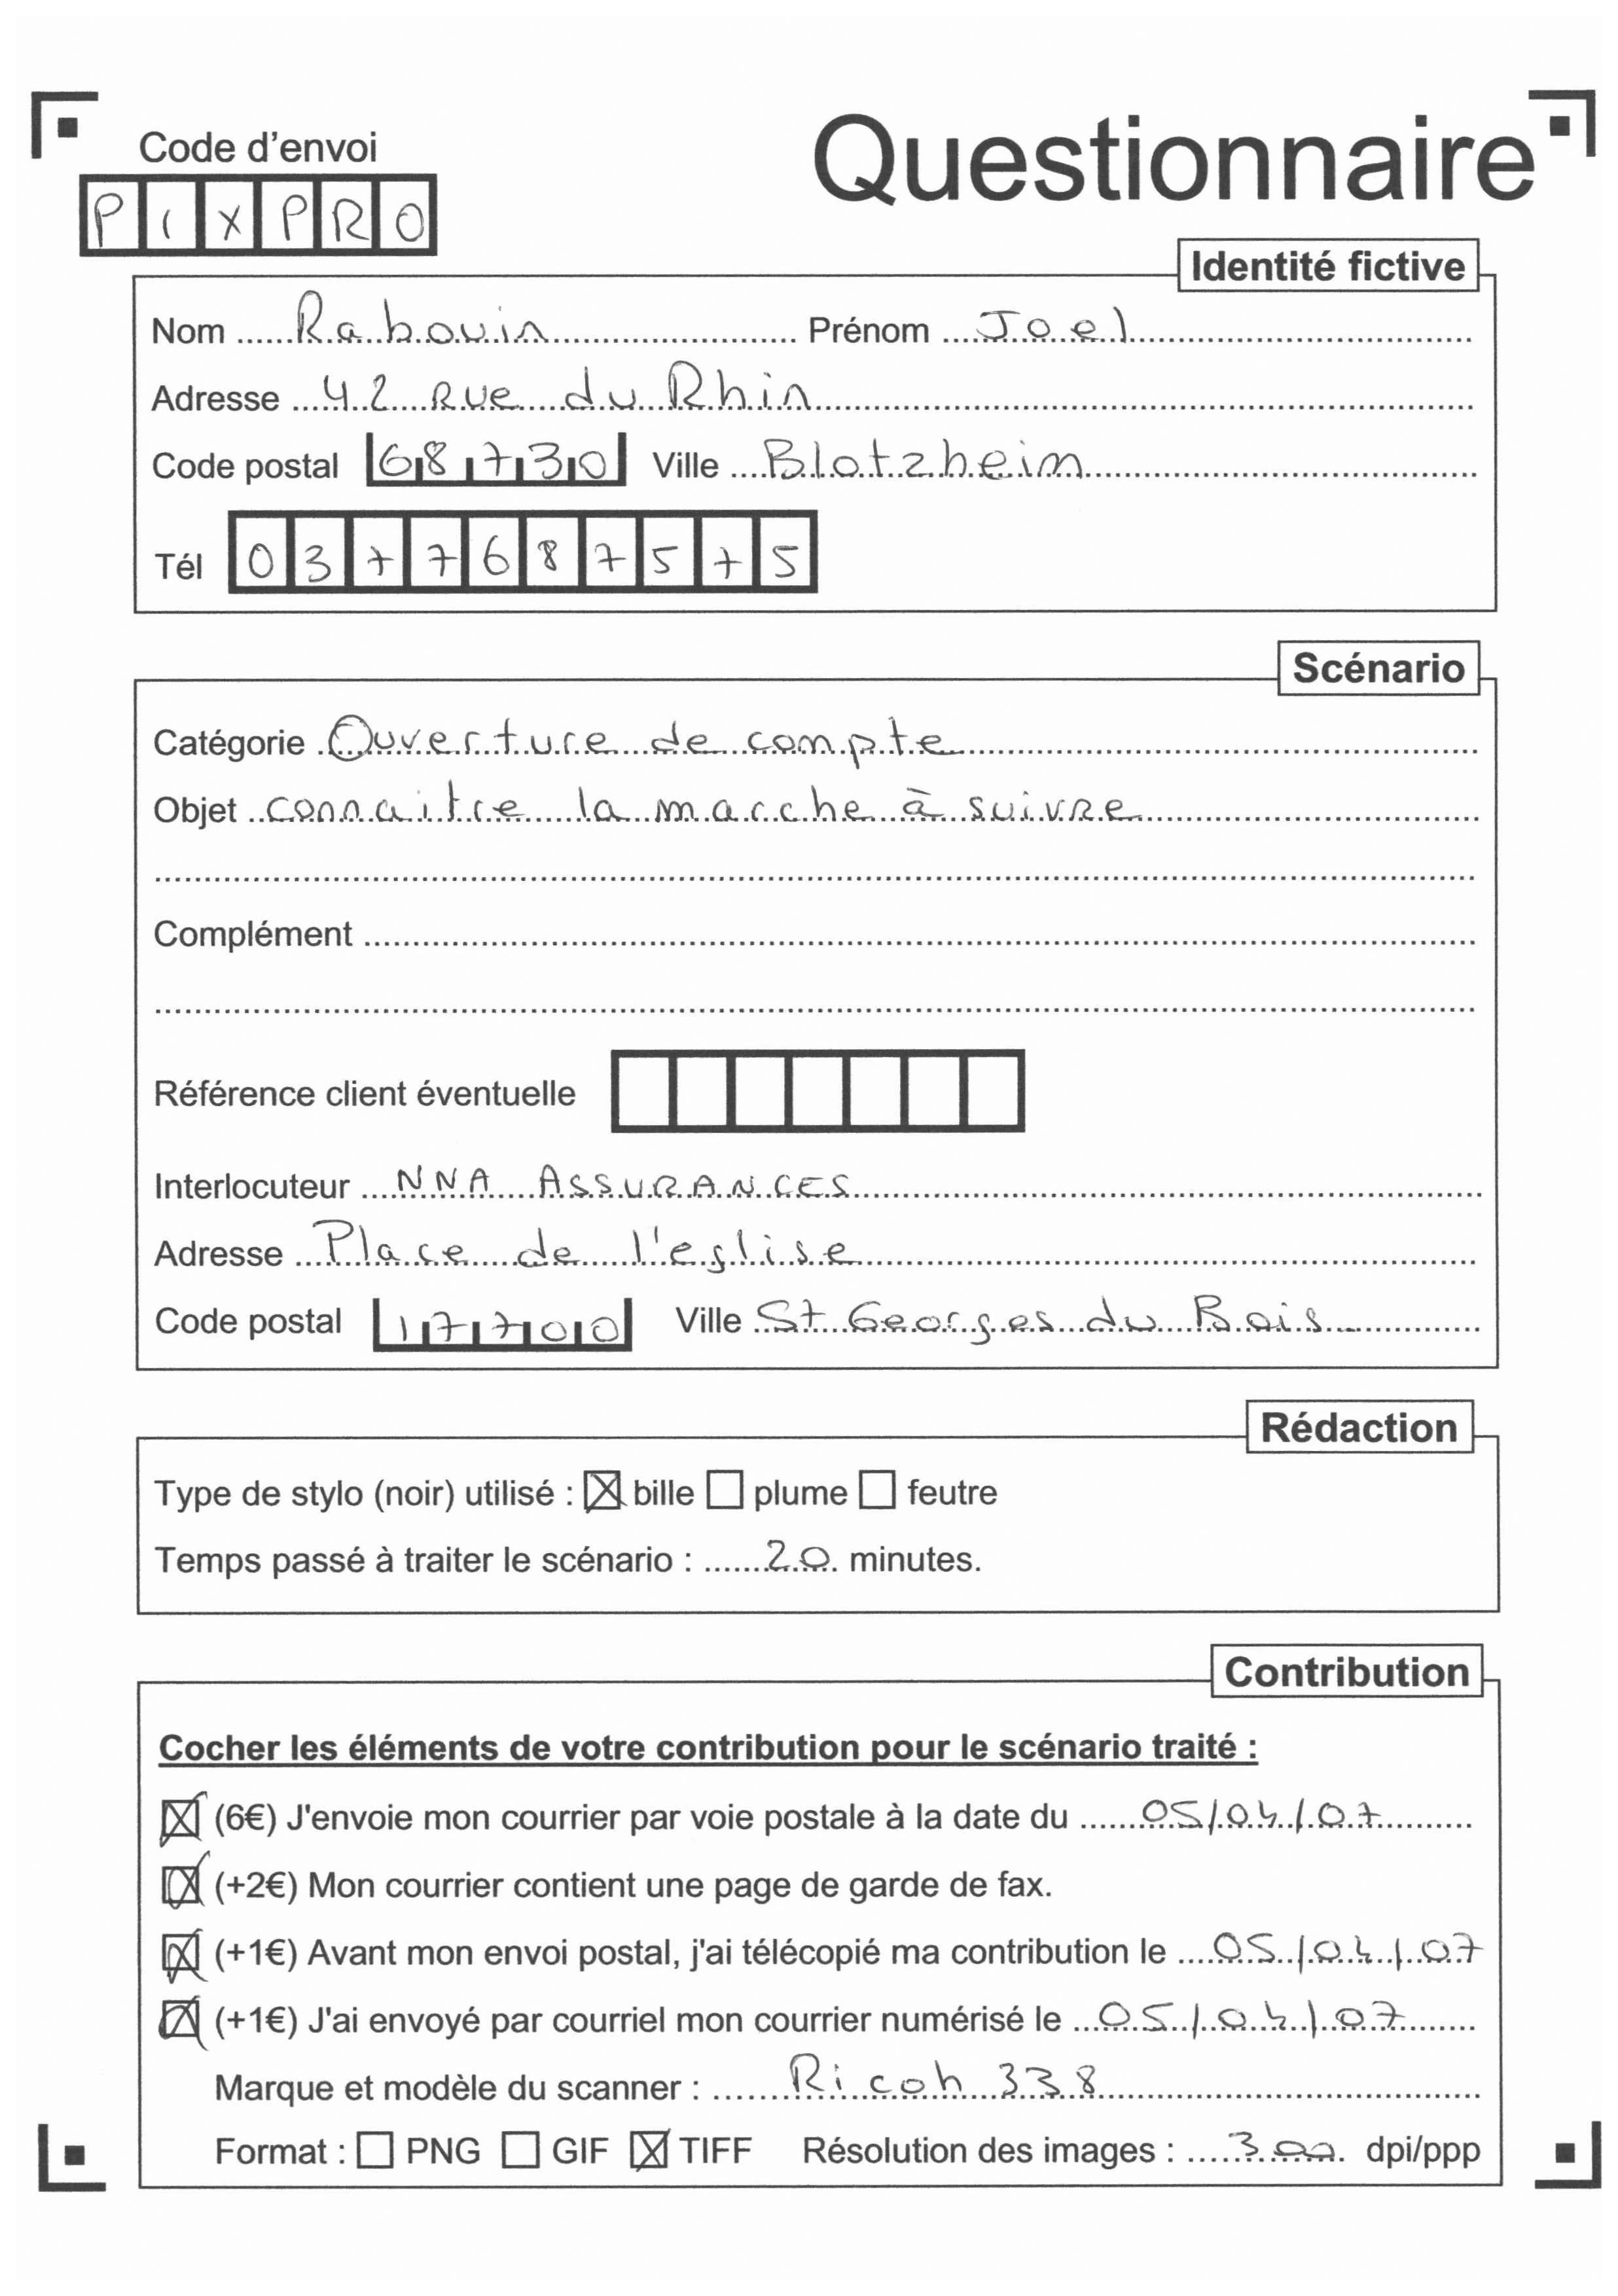 Code d'envoi
Questionnaire
PIXPRO
Identité fictive
Nom Rabouin Prénom Joel
Adresse 42 Rue du Rhin
Code postal 68730 Ville Blotzheim
Tél 0377687575
Scénario
Catégorie Ouverture de compte
Objet connaitre la marche à suivre
Complément
Référence client éventuelle
Interlocuteur NNA ASSURANCES
Adresse Place de l'eglise
Code postal 17700 Ville St Georges du Bois
Rédaction
Type de stylo (noir) utilisé : bille plume feutre
Temps passé à traiter le scénario : 20 minutes.
Contribution
Cocher les éléments de votre contribution pour le scénario traité :
(6€) J'envoie mon courrier par voie postale à la date du 05/04/07
(+2€) Mon courrier contient une page de garde de fax.
(+1€) Avant mon envoi postal, j'ai télécopié ma contribution le 05/04/07
(+1€) J'ai envoyé par courriel mon courrier numérisé le 05/04/07
Marque et modèle du scanner : Ricoh 338
Format : PNG GIF TIFF Résolution des images : 300 dpi/ppp